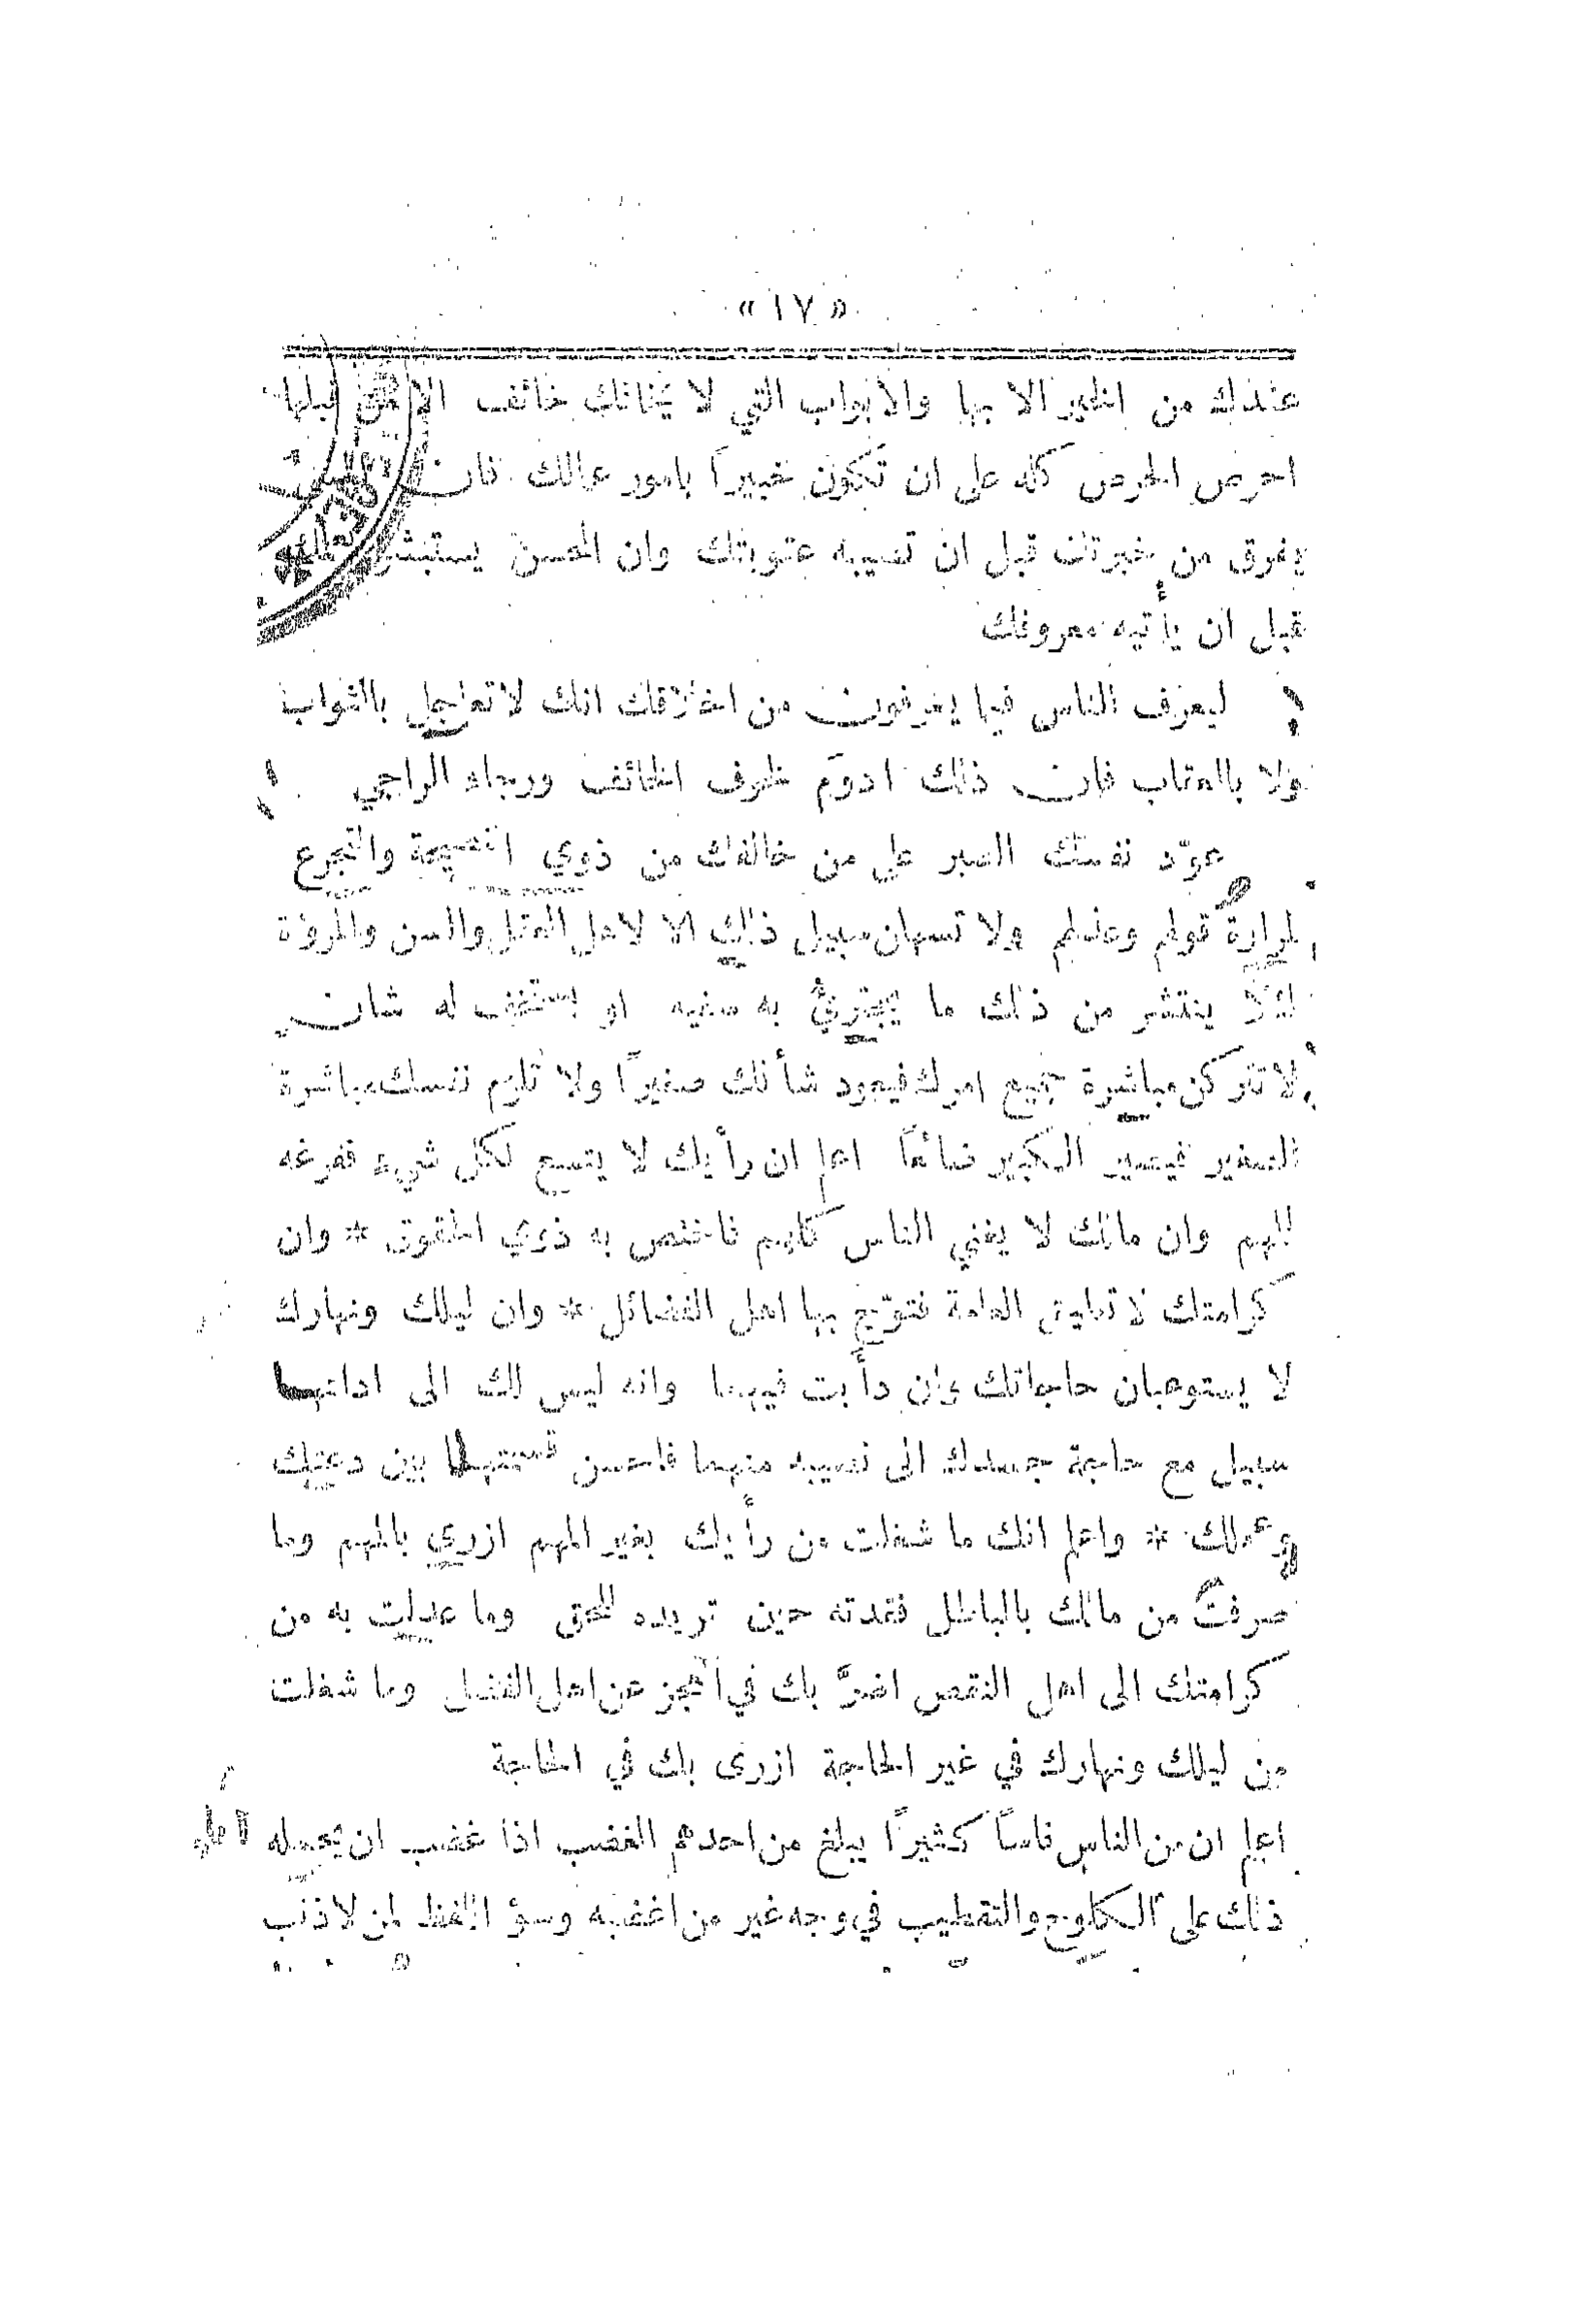 « ١٧ »
عندك من الخير الا بها والأبواب التي لا يخافك خائف الا من قبلها
احرص الحرص كله على ان تكون خبيراً بامور عمالك فان المسيء
يفرق من خبرتك قبل ان تصيبه عقوبتك وان المحسن يستبشر
قبل ان يأتيه معروفك
ليعرف الناس فيما يعرفون من اخلاقك انك لا تعاجل بالثواب
ولا بالعقاب فان ذلك ادوم لخوف الخائف ورجاء الراجي
عوّد نفسك الصبر على من خالفك من ذوي النصيحة والتجرع
لمرارة قولهم وعذلهم ولا تسهلن سبيل ذلك الا لاهل العقل والسن والمروؤة
لئلا ينتشر من ذلك ما يجترئ به سفيه او يستخف له شان
لا تتركن مباشرة جسيم امرك فيعود شأنك صغيراً ولا تلزم نفسك مباشرة
الصغير فيصير الكبير ضائعاً اعلم ان رأيك لا يتسع لكل شيء ففرغه
للمهم وان مالك لا يغني الناس كلهم فاختص به ذوي الحقوق * وان
كرامتك لا تطيق العامة فتوّج بها اهل الفضائل * وان ليلك ونهارك
لا يستوعبان حاجاتك وان دأبت فيهما وانه ليس لك الى ادائهما
سبيل مع حاجة جسدك الى نصيبه منهما فاحسن قسمتهما بين دعتك
وعملك * واعلم انك ما شغلت من رأيك بغير المهم ازرى بالمهم وما
صرفت من مالك بالباطل فقدته حين تريده للحق وما عدلت به من
كرامتك الى اهل النقص اضرَّ بك في العجز عن اهل الفضل وما شغلت
من ليلك ونهارك في غير الحاجة ازرى بك في الحاجة
اعلم ان من الناس ناساً كثيراً يبلغ من احدهم الغضب اذا غضب ان يحمله
ذلك على الكلوح والتقطيب في وجه غير من اغضبه وسوء اللفظ لمن لا ذنب